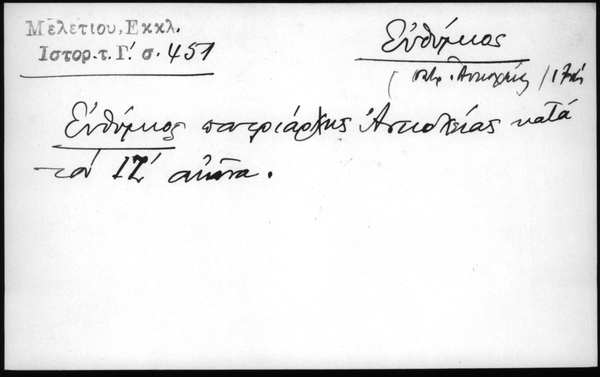 Μελετίου, Εκκλ.
Ιστορ. τ. Γ΄. σ. 451
Εὐθύμιος
πατρ. Ἀντιοχείας
Εὐθύμιος πατριάρχης Ἀντιοχείας κατά
τόν ΙΖ΄ αἰῶνα.